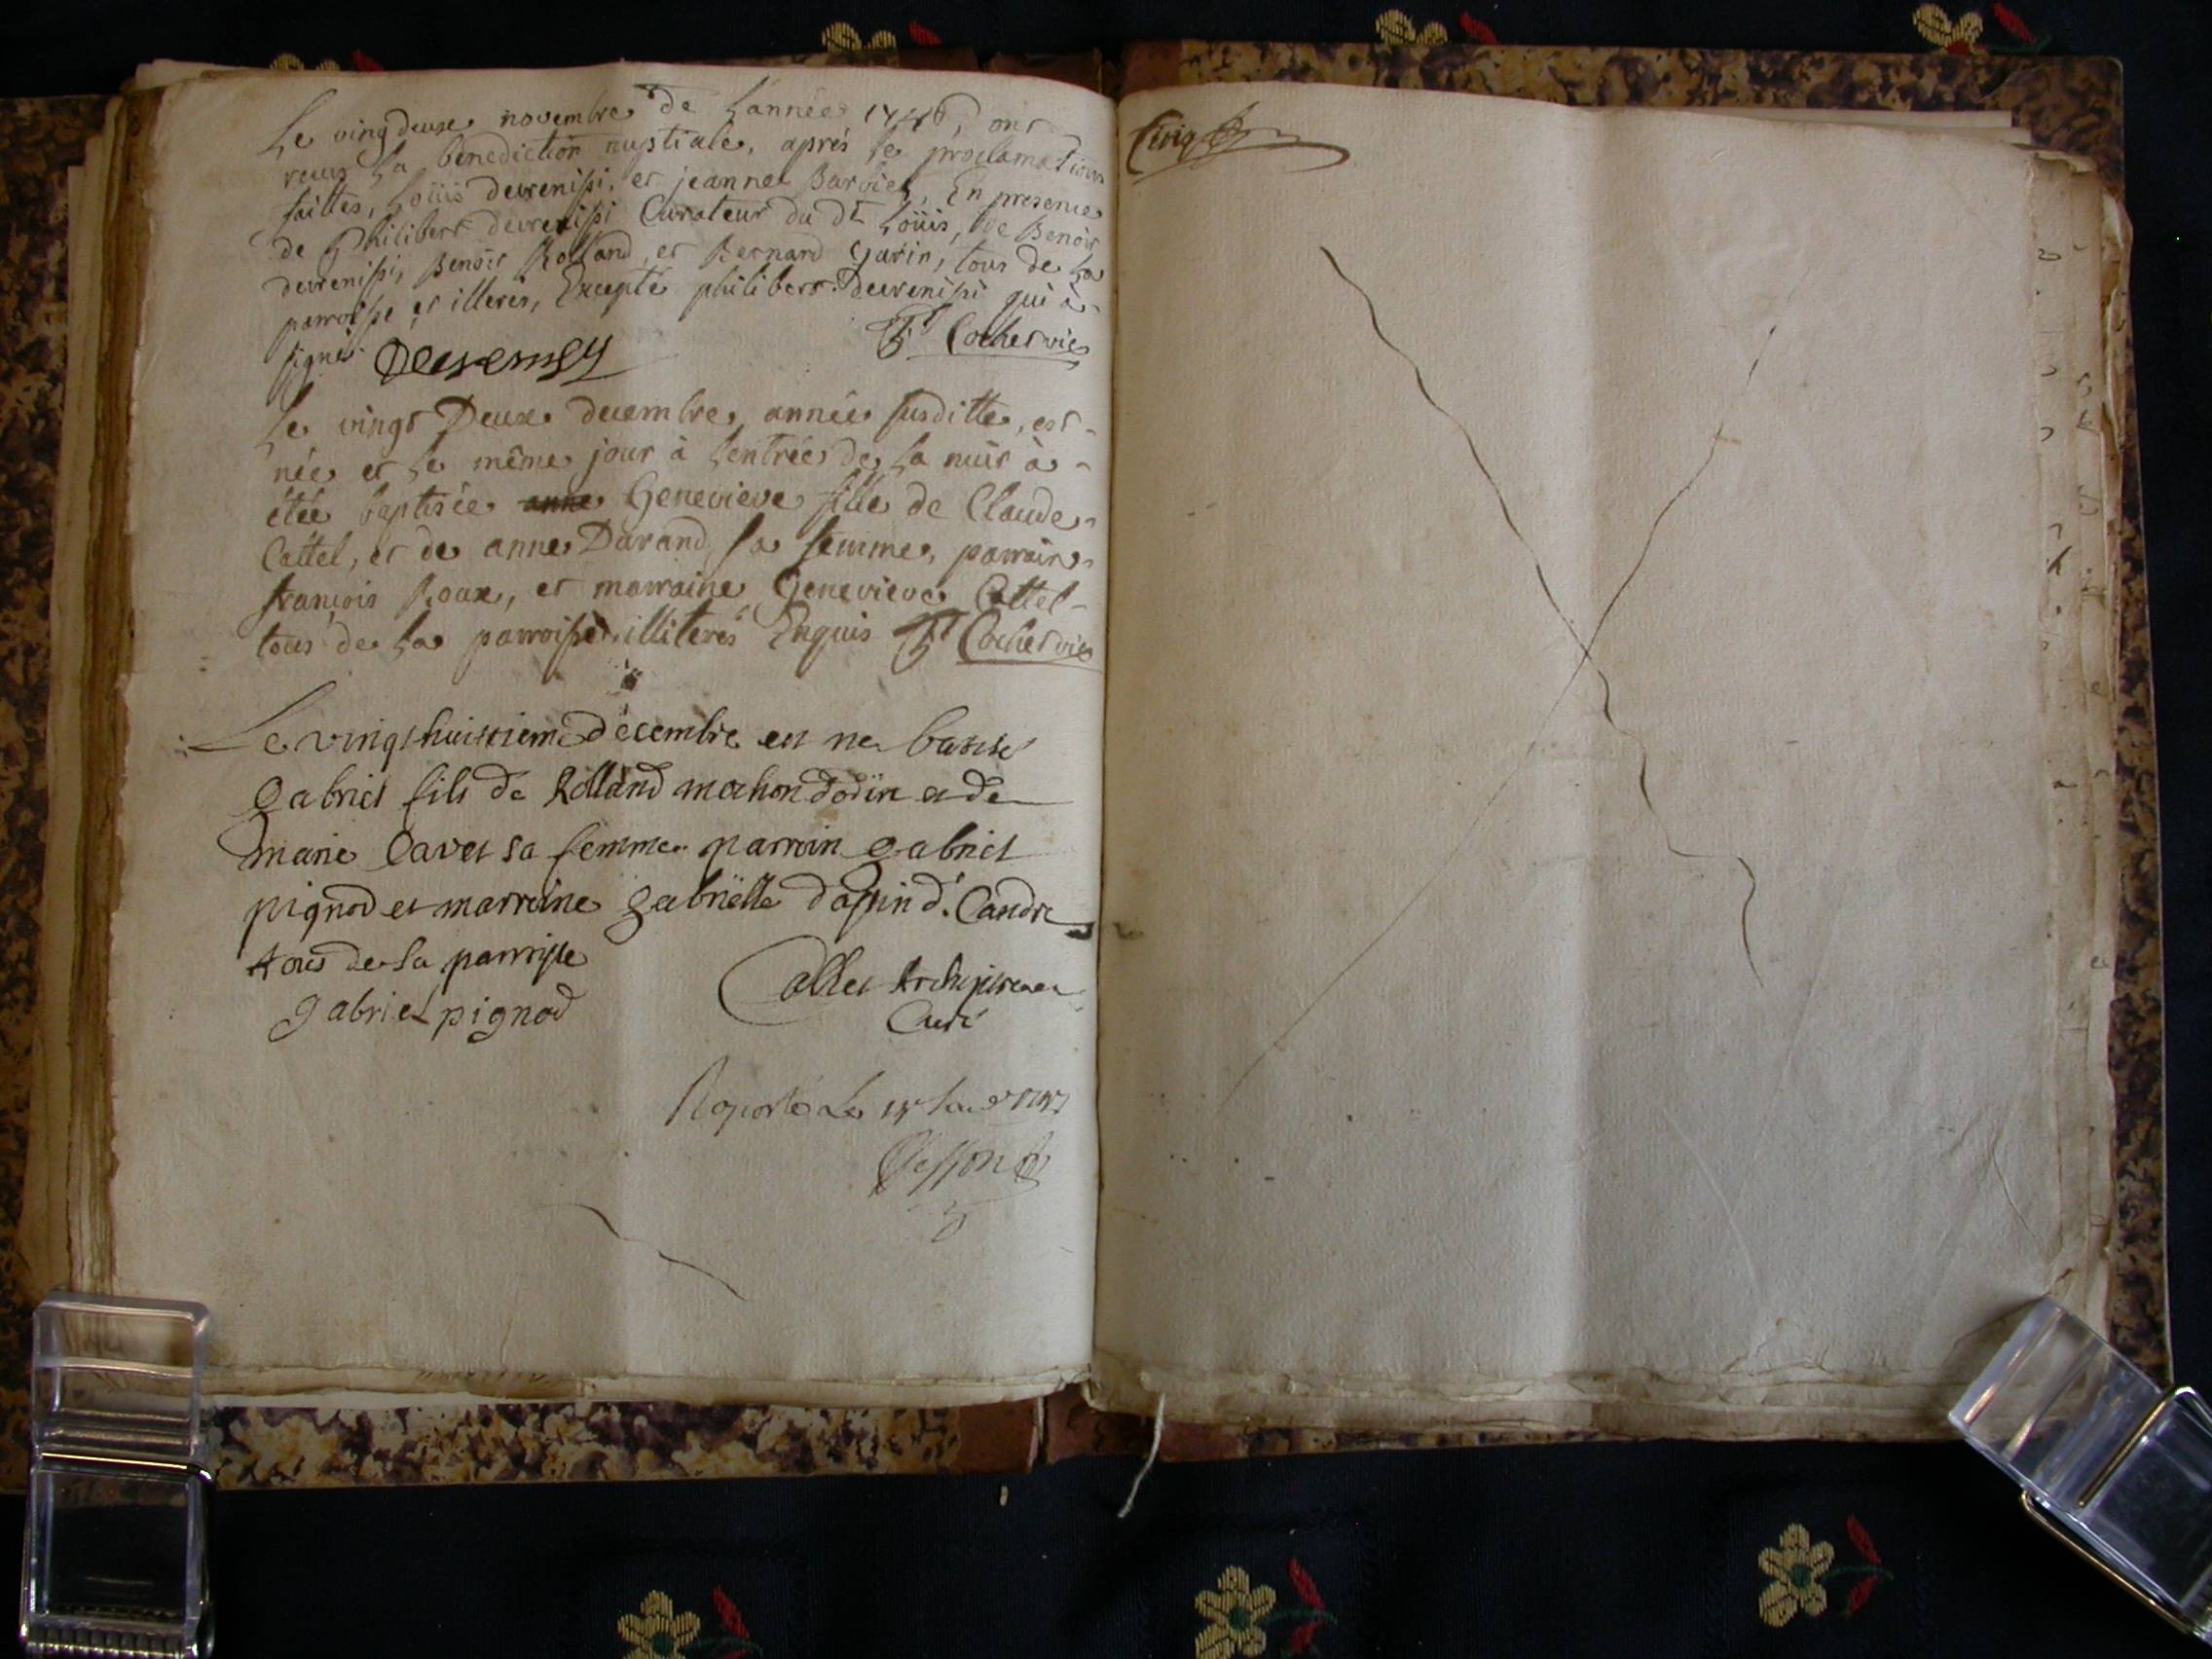 Le ving deuxe novembre de Lannée 1746, ont
recus La bénediction nuptiale, aprés le proclamations
faittes, Loüis devrenissi, et jeanne Barbier, En presence
de Philibert devrenissi Curateur du dt Loüis, de Benoit
devrenissi, Benoit Rolland, et Bernard Garin, tous de La
parroisse et illerés, Excepté philibert devrenissi qui à
signé. Devrenssy Cochet vic
Le vingt Deuxe decembre, année susditte, est
née et le même jour à Lentrée de La nuit à
étée baptisée anne Genevieve fille de Claude
Cattel, et de anne Durand sa femme, parrain
françois Roux, et marraine Genevieve Cattel
tous de La parroisse illiterés Enquis Cochet vic
Le vingt huittieme décembre est ne batisé
gabriel fils de Rolland mahon dodin et de
marie Cavet sa femme parrain gabriel
pignod et marraine gabriëlle dapin d. Candre
tous de La parroisse
Callet Archiprere
gabriel pignod Curé
Raporté Le